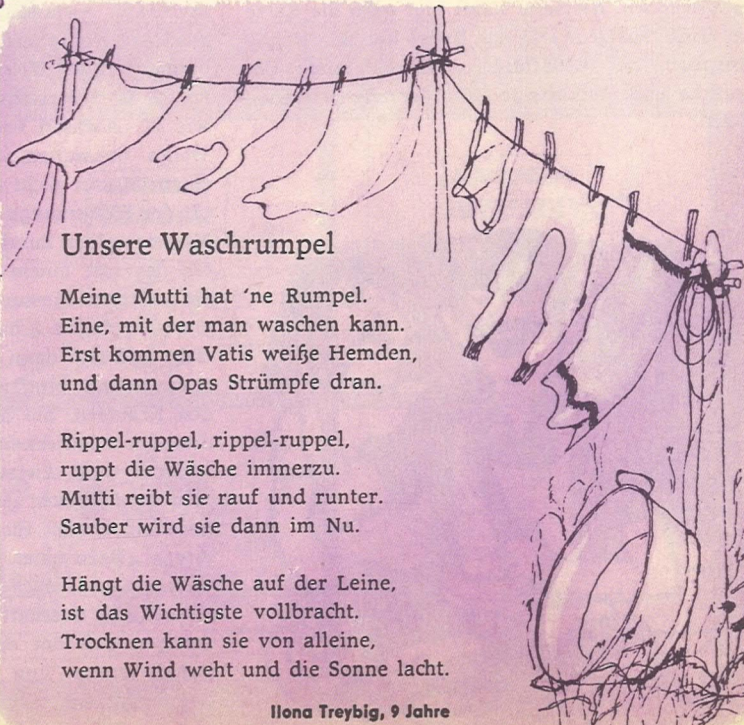 Unsere Waschrumpel
Meine Mutti hat ‘ne Rumpel.
Eine, mit der man waschen kann.
Erst kommen Vatis weiße Hemden,
und dann Opas Strümpfe dran.
Rippel-ruppel, rippel-ruppel,
ruppt die Wäsche immerzu.
Mutti reibt sie rauf und runter.
Sauber wird sie dann im Nu.
Hängt die Wäsche auf der Leine,
ist das Wichtigste vollbracht.
Trocknen kann sie von alleine,
wenn Wind weht und die Sonne lacht.
Ilona Treybig, 9 Jahre